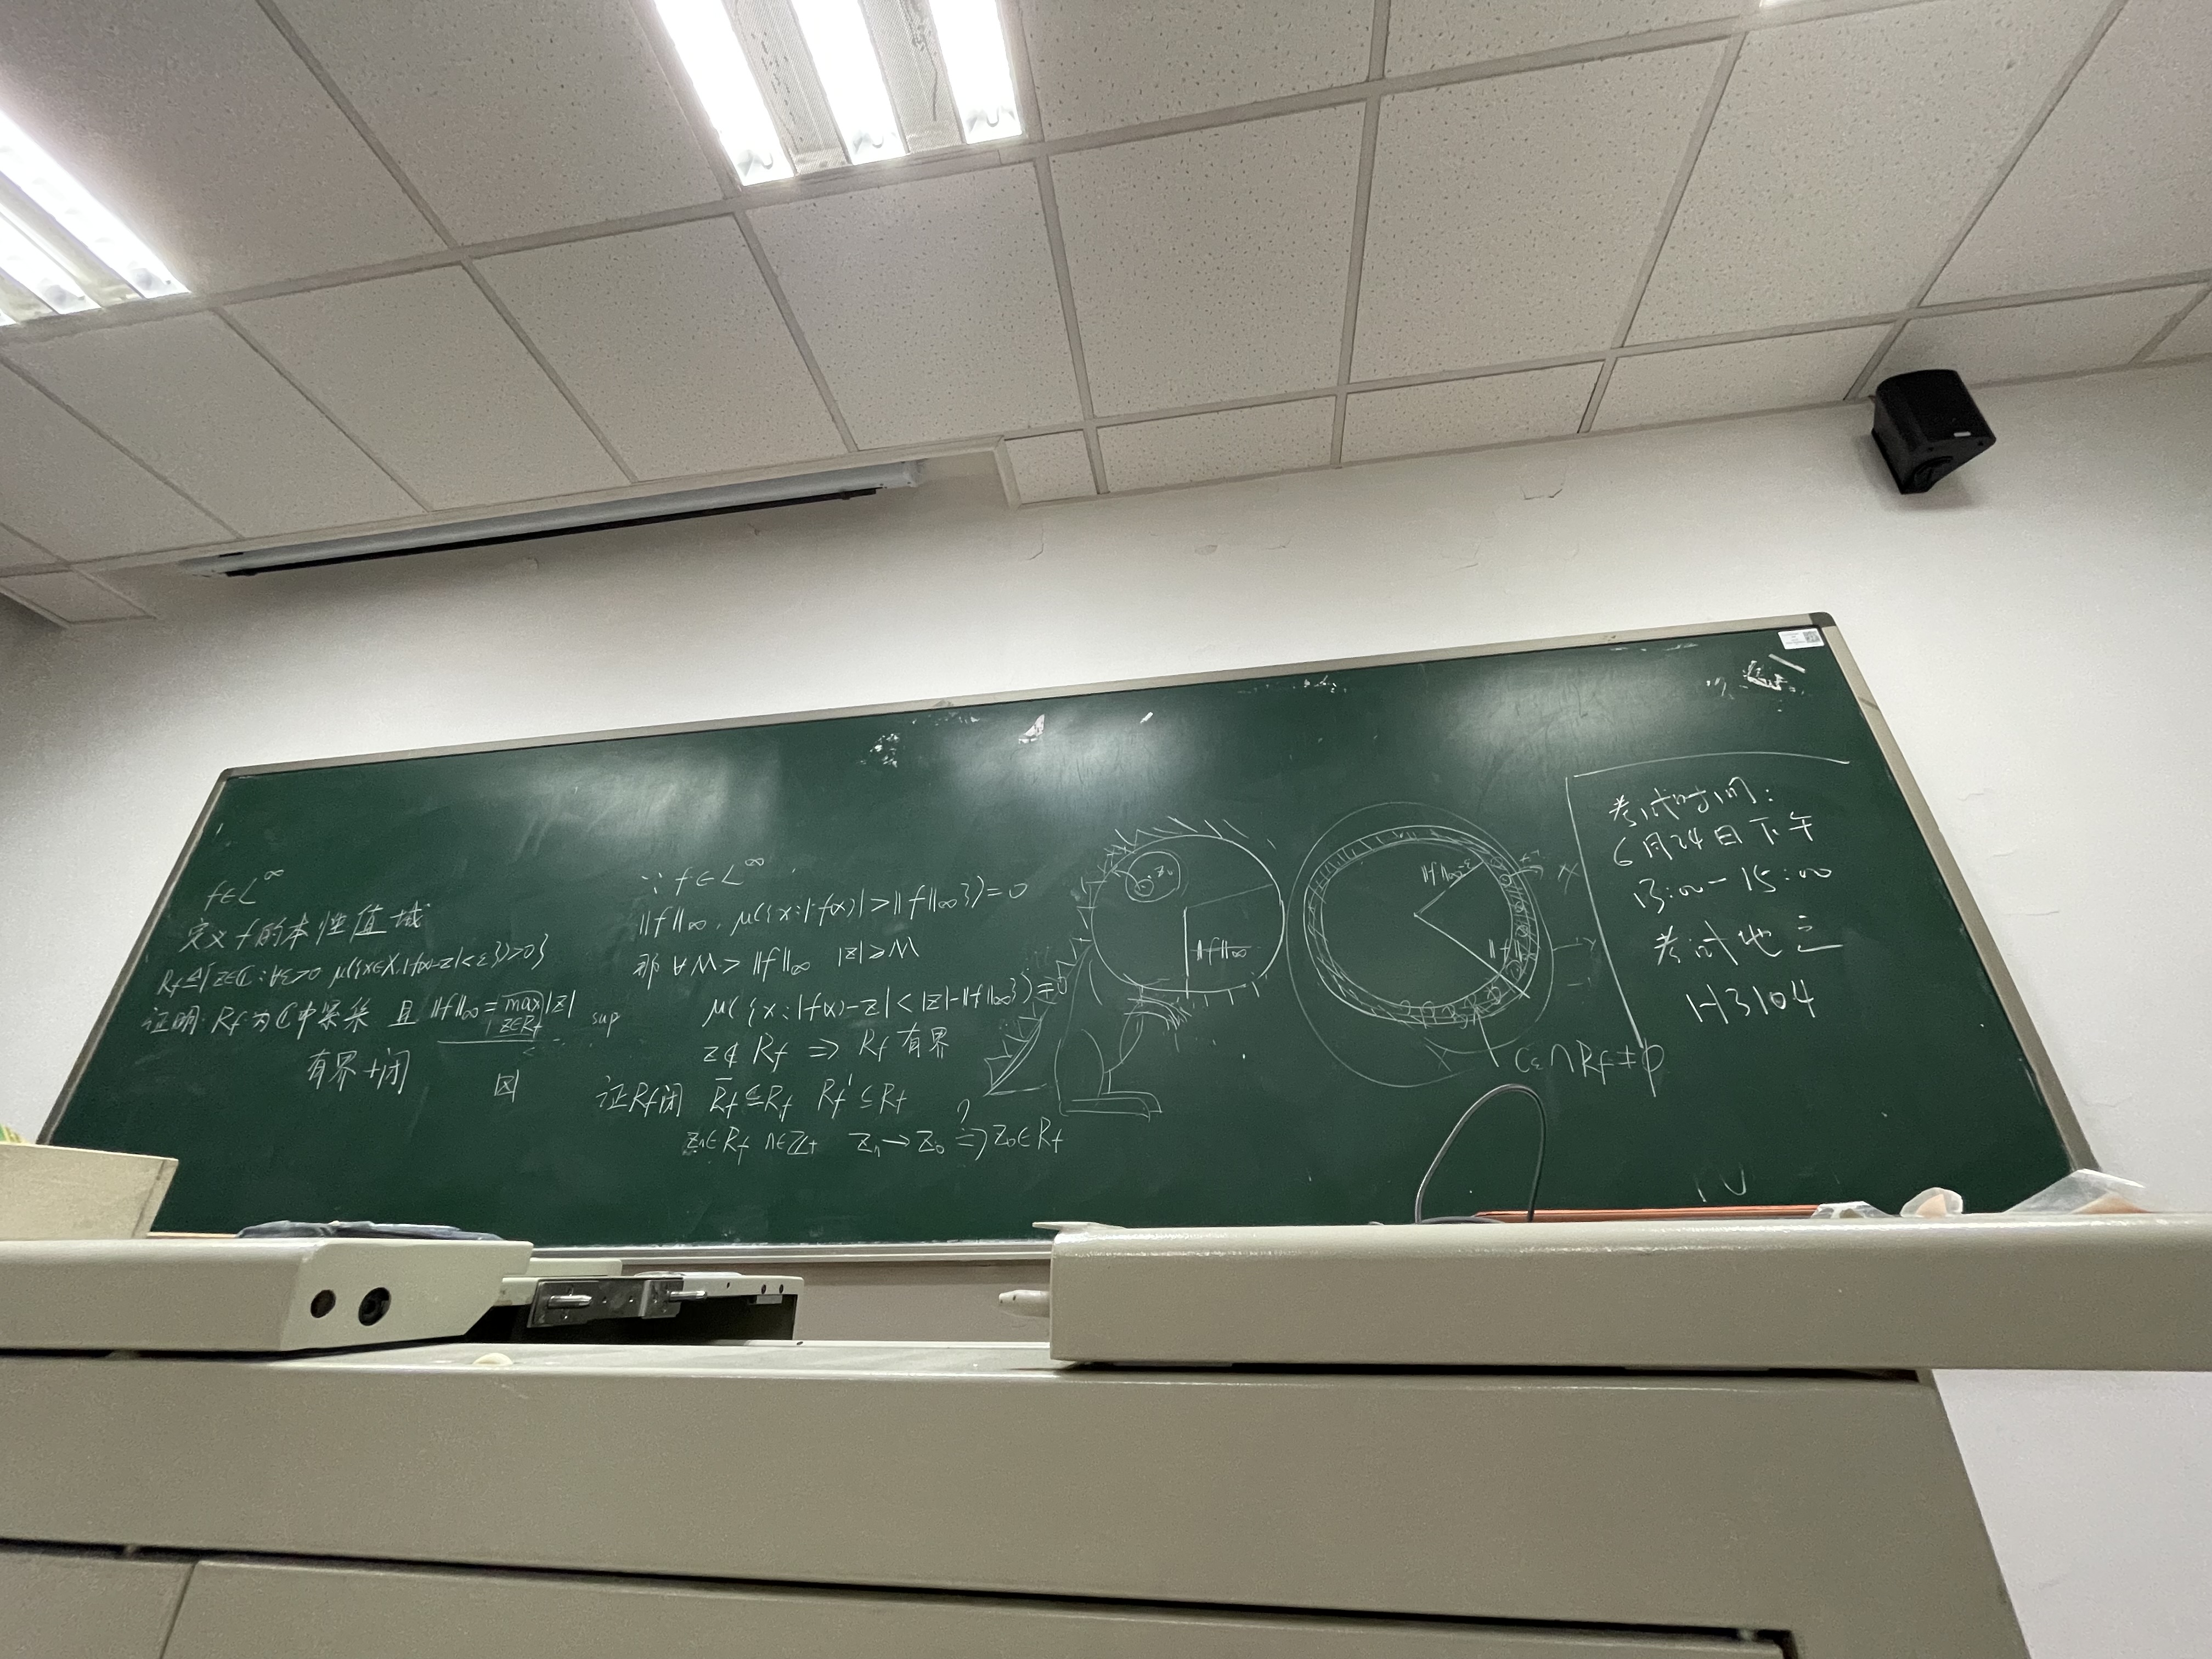 f∈L^∞
定义f的本性值域
Rf≜{z∈ℂ:∀ε>0 μ({x∈X,|f(x)-z|<ε})>0}
证明:Rf为ℂ中紧集 且 ‖f‖∞=max_{z∈Rf}|z| sup
有界+闭
図
∵f∈L^∞
‖f‖∞, μ({x:|f(x)|>‖f‖∞})=0
那∀M>‖f‖∞ |z|≥M
μ({x:|f(x)-z|<|z|-‖f‖∞})=0
z∉Rf ⇒ Rf有界
证Rf闭 R̄f⊆Rf Rf'⊆Rf
zn∈Rf n∈ℤ+ zn→z0 ⇒? z0∈Rf
z0
‖f‖∞
‖f‖∞-ε
Cε∩Rf≠∅
考试时间:
6月24日下午
13:00-15:00
考试地点
H3104